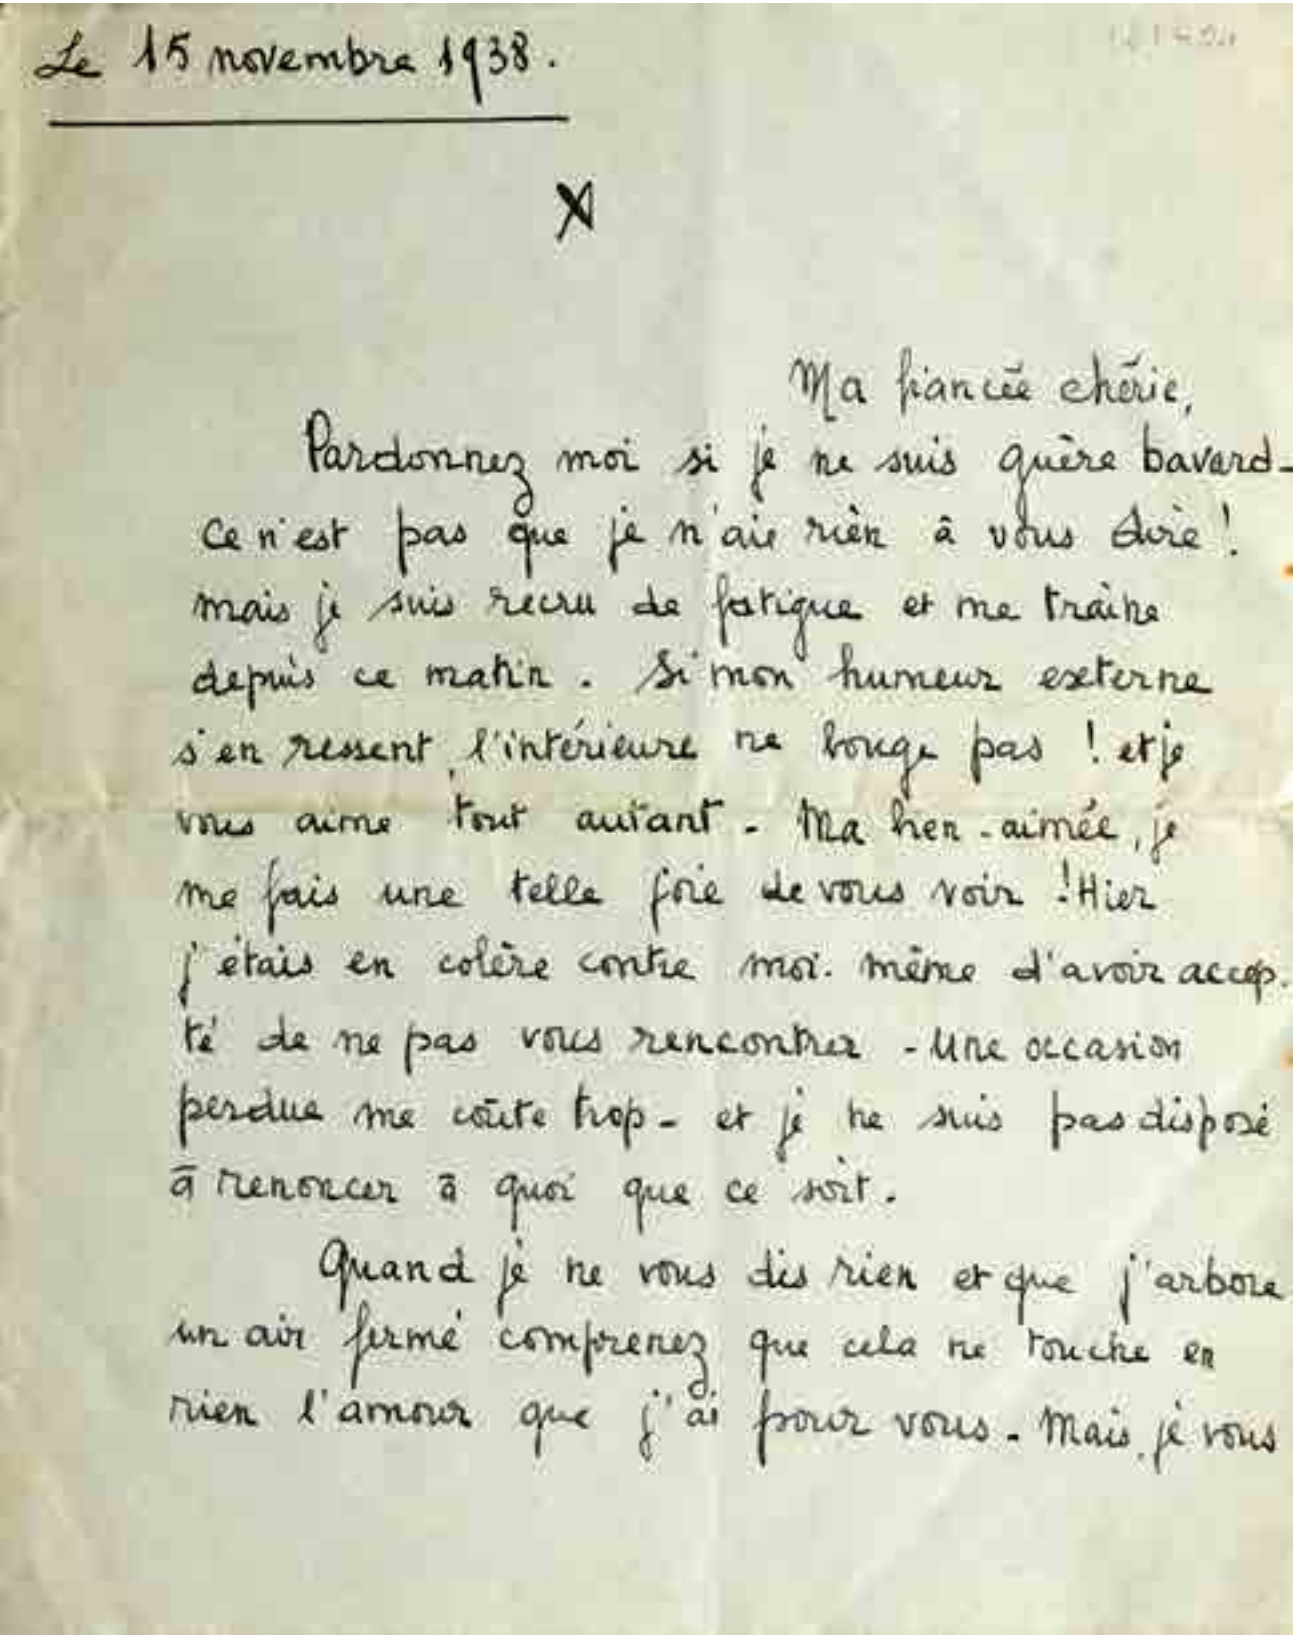 Le 15 novembre 1938.
X
Ma fiancée chérie,
Pardonnez moi si je ne suis guère bavard -
Ce n'est pas que je n'aie rien à vous dire !
mais je suis recru de fatigue et me traîne
depuis ce matin. Si mon humeur externe
s'en ressent, l'intérieure ne bouge pas ! et je
vous aime tout autant - Ma bien-aimée, je
me fais une telle joie de vous voir ! Hier
j'étais en colère contre moi-même d'avoir accep-
té de ne pas vous rencontrer - Une occasion
perdue me coûte trop - et je ne suis pas disposé
à renoncer à quoi que ce soit.
Quand je ne vous dis rien et que j'arbore
un air fermé comprenez que cela ne touche en
rien l'amour que j'ai pour vous - Mais je vous